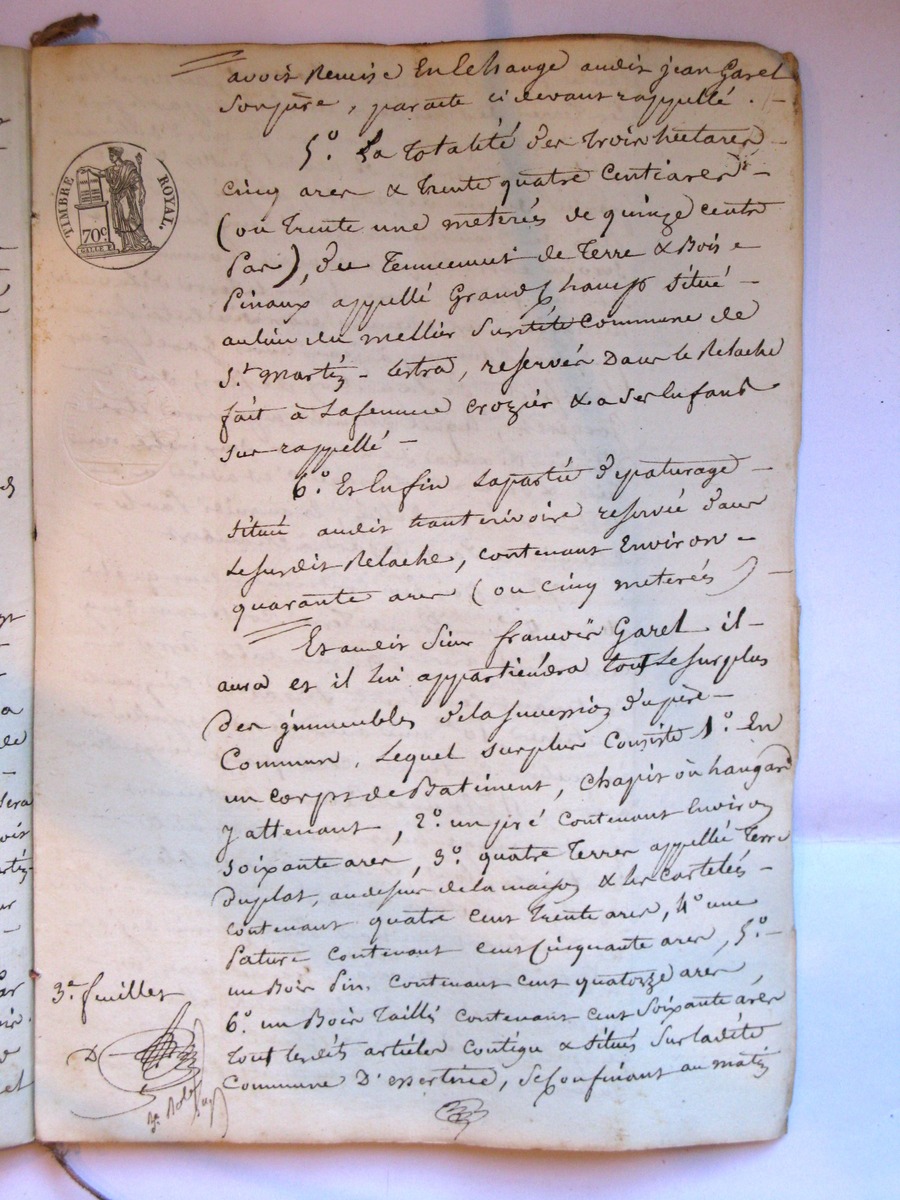 TIMBRE ROYAL.
70c
avoir Remise En Echange audit jean Garel
Son père, par acte ci devant rappellé .
5.o La totalité des trois hectares
cinq ares & trente quatre Centiares
(ou trente une meterées de quinze cents
Pas), du Tennement de Terre & Bois
Pinaux appellé Grand Champs Situé
au lieu du mellier Sur ditte Commune de
S.t martin - Lestra, reservés Dans le Relache
fait à La femme crozier & a Ses Enfants
sur-rappellé
6.o Et Enfin La partie de paturage
Situé audit hauterivoire reservée dans
Le Susdit Relache, contenant Environ
quarante ares (ou cinq meterées)
Et audit Sieur francois Garel il
aura et il Lui appartiendra tout Le Surplus
Des immeubles de la Succession du père
Commun, Lequel Surplus Consiste 1.o En
un corps de Batiment, chapit ou hangard
y attenant, 2.o un pré contenant Environ
Soixante ares, 3.o quatre Terres appellées Terre
Duplat, au dessus de la maison & Les Cartelées
contenant quatre cent trente ares, 4o une
Pature contenant cent Cinquante ares, 5.o
un Bois Pin, contenant cent quatorze ares
6.o un Bois Taillis contenant cent Soixante ares
tout Lesdits articles contigu & Situés Sur ladite
Commune D'essertine, Se Confinant au matin
3.e feuillet